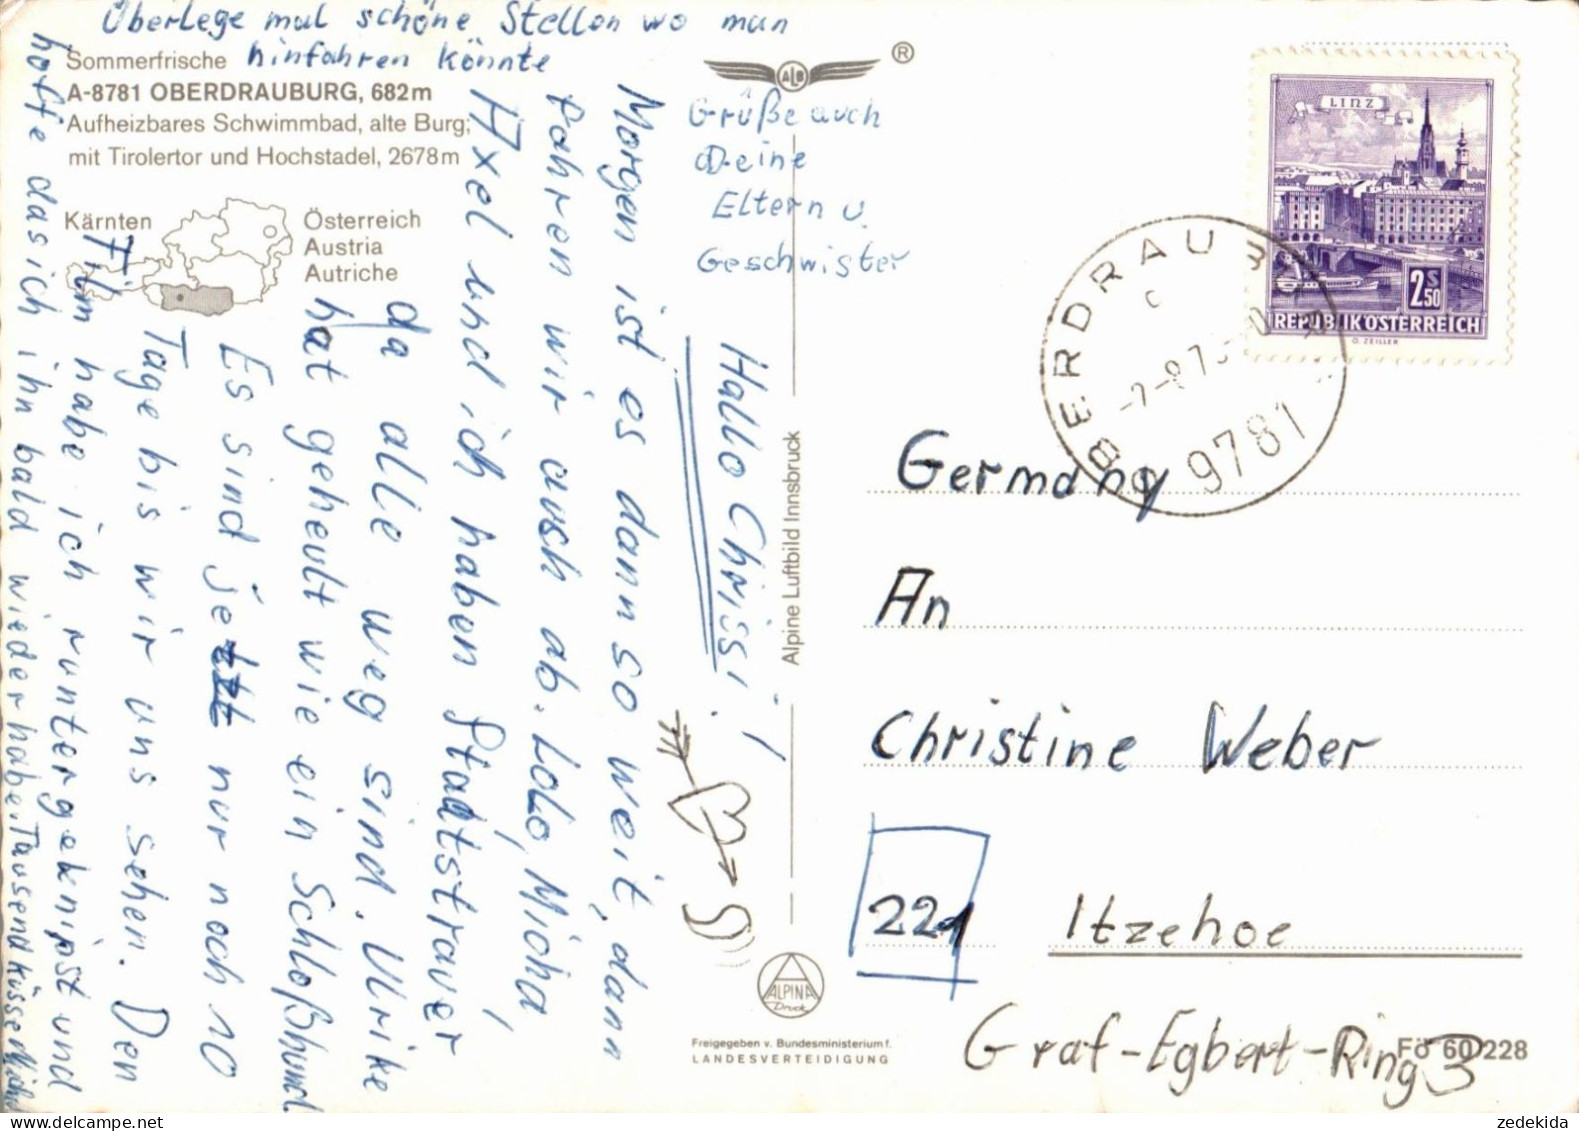 Überlege mal schöne Stellen wo man
hinfahren könnte
Sommerfrische
A-8781 OBERDRAUBURG, 682m
Aufheizbares Schwimmbad, alte Burg;
mit Tirolertor und Hochstadel, 2678m
Kärnten
Österreich
Austria
Autriche
ALB
®
Grüße auch
Deine
Eltern u.
Geschwister
Hallo Chrissi!
Morgen ist es dann so weit, dann
fahren wir auch ab. Lolo, Micha,
Axel und ich haben Stadtstrauer
da alle weg sind. Ulrike
hat geheult wie ein Schloßhund
Es sind jetzt nur noch 10
Tage bis wir uns sehen. Den
Film habe ich runtergeknipst und
hoffe das ich ihn bald wieder habe. Tausend Küsse Micha
Alpine Luftbild Innsbruck
ALPINA
Druck
Freigegeben v. Bundesministerium f.
LANDESVERTEIDIGUNG
LINZ
2S50
REPUBLIK ÖSTERREICH
O. ZEILLER
OBERDRAUBURG
9781
Germany
An
Christine Weber
221 Itzehoe
Graf-Egbert-Ring 3
Fö 60 228
www.delcampe.net
zedekida